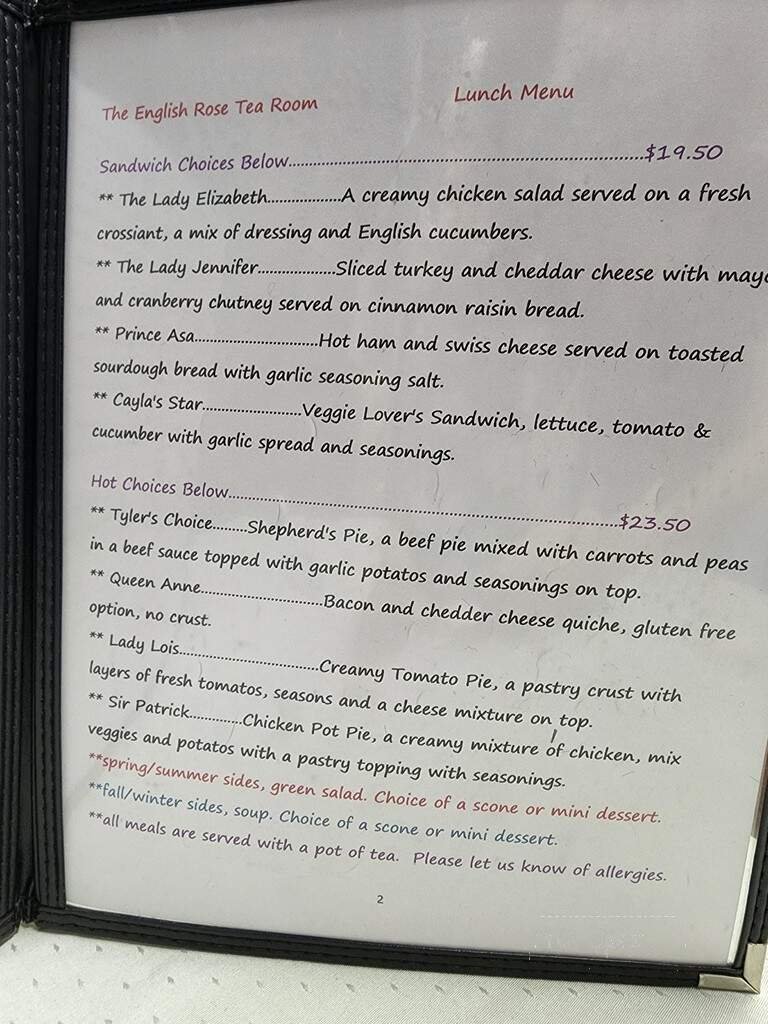 The English Rose Tea Room Lunch Menu
Sandwich Choices Below..........................................................................$19.50
** The Lady Elizabeth..................A creamy chicken salad served on a fresh
crossiant, a mix of dressing and English cucumbers.
** The Lady Jennifer...................Sliced turkey and cheddar cheese with mayo
and cranberry chutney served on cinnamon raisin bread.
** Prince Asa..............................Hot ham and swiss cheese served on toasted
sourdough bread with garlic seasoning salt.
** Cayla's Star........................Veggie Lover's Sandwich, lettuce, tomato &
cucumber with garlic spread and seasonings.
Hot Choices Below..................................................................................$23.50
** Tyler's Choice........Shepherd's Pie, a beef pie mixed with carrots and peas
in a beef sauce topped with garlic potatos and seasonings on top.
** Queen Anne..............................Bacon and chedder cheese quiche, gluten free
option, no crust.
** Lady Lois..................................Creamy Tomato Pie, a pastry crust with
layers of fresh tomatos, seasons and a cheese mixture on top.
** Sir Patrick.............Chicken Pot Pie, a creamy mixture of chicken, mix
veggies and potatos with a pastry topping with seasonings.
**spring/summer sides, green salad. Choice of a scone or mini dessert.
**fall/winter sides, soup. Choice of a scone or mini dessert.
**all meals are served with a pot of tea. Please let us know of allergies.
2